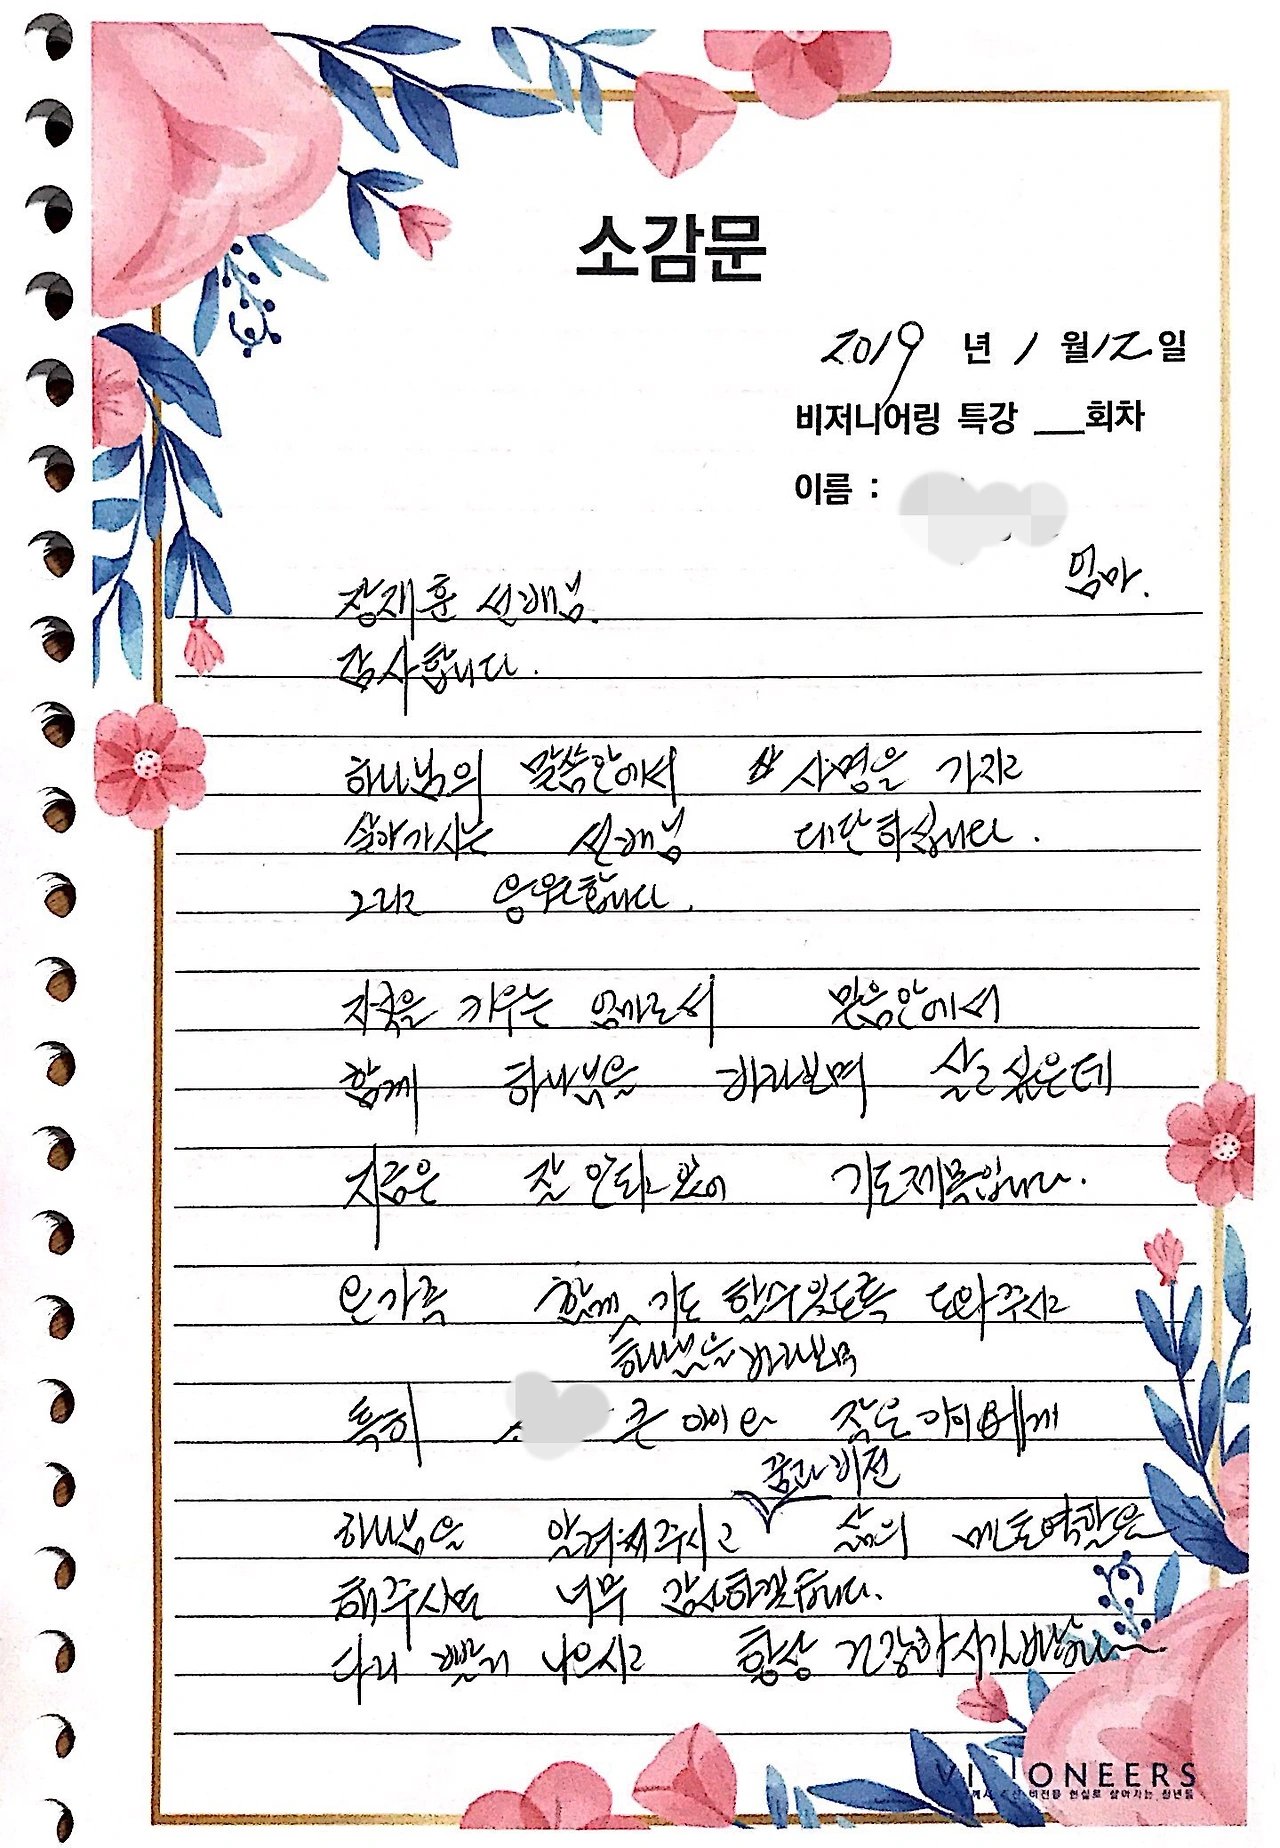 소감문
2019 년 1 월 12 일
비저니어링 특강 __회차
이름 :
엄마.
장재훈 선배님.
감사합니다.
하나님의 말씀안에서 사명을 가지고
살아가시는 선배님 대단하십니다.
그리고 응원합니다.
자녀을 키우는 엄마로서 믿음안에서
함께 하나님을 바라보며 살고 싶은데
지금은 잘 안되고 있어 기도제목입니다.
온가족 함께 기도 할수있도록 도와주시고
하나님을 바라보며
특히 큰 아이와 작은아이에게
꿈과 비전
하나님을 알려주시고 삶의 멘토역할을
해주시면 너무 감사하겠습니다.
다리 빨리 나으시고 항상 건강하시기 바랍니다
VISIONEERS
비전을 현실로 살아가는 청년들